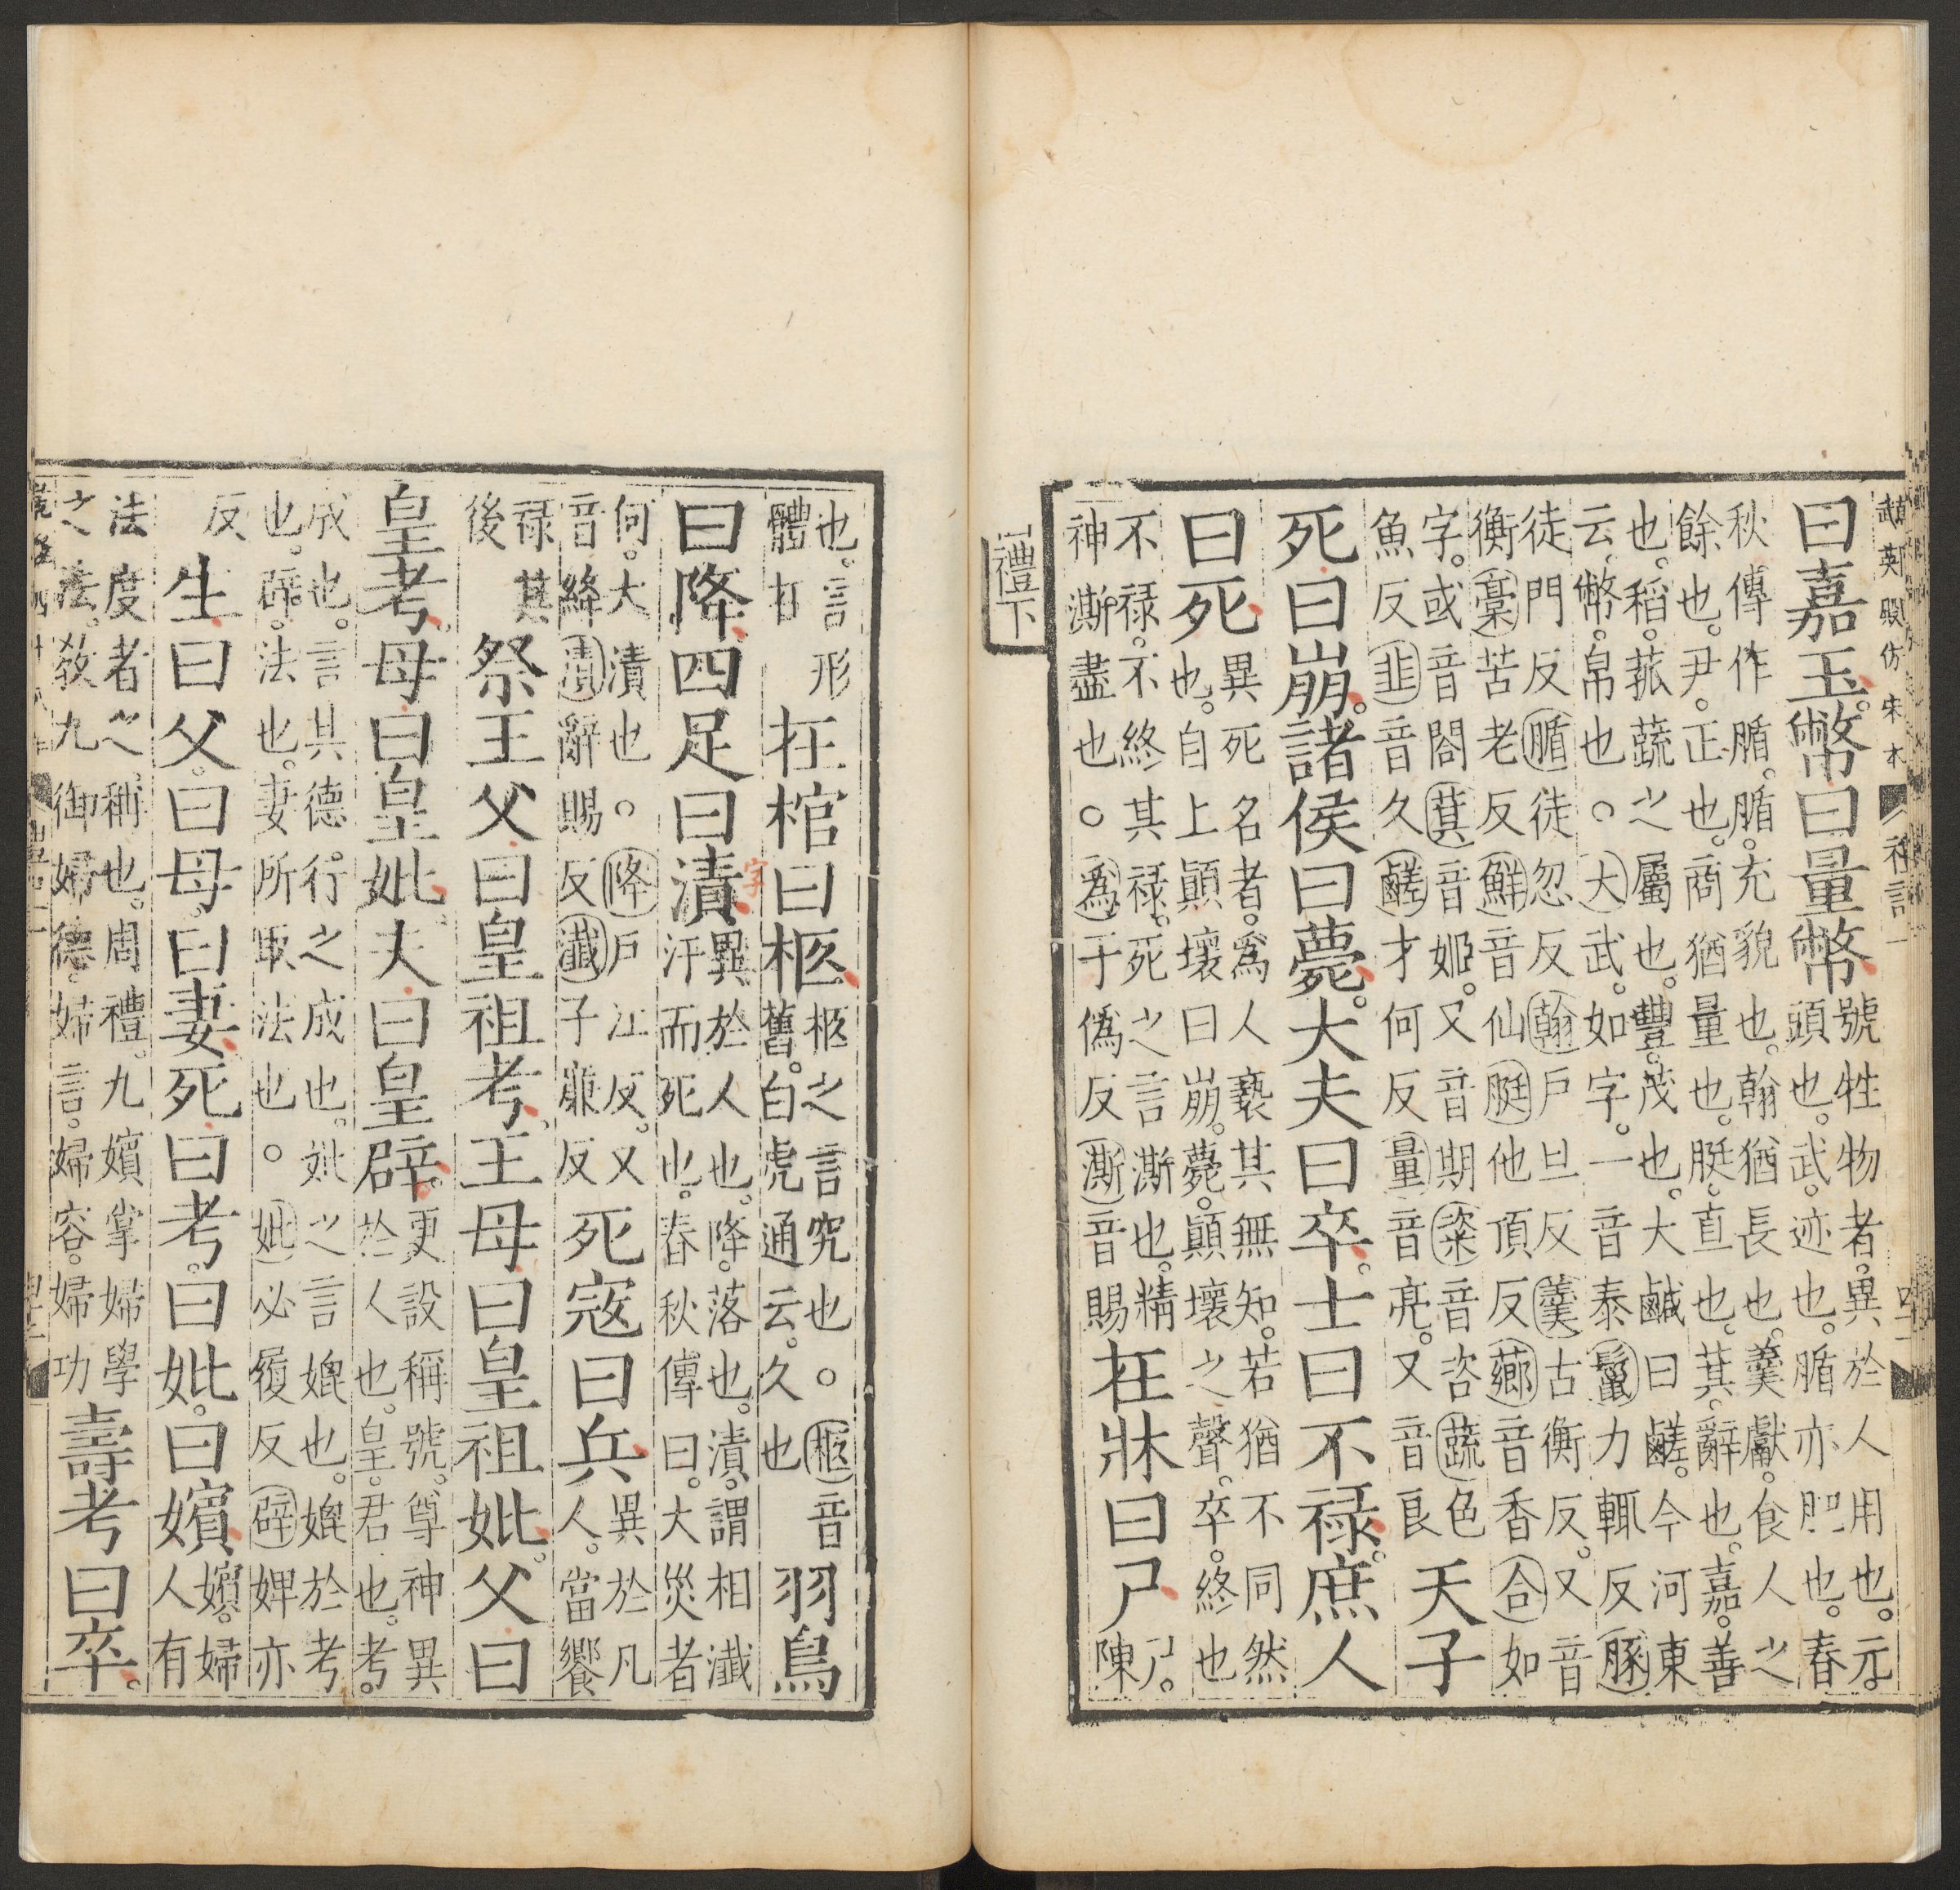 曰嘉玉。幣曰量幣號牲物者。異於人用也。元。
頭也。武。迹也。腯亦肥也。春
秋傳作腯。腯。充貌也。翰猶長也。羹獻。食人之
餘也。尹。正也。商猶量也。脡。直也。萁。辭也。嘉。善
也。稻。菰蔬之屬也。豐。茂也。大鹹曰鹺。今河東
云。幣。帛也○大武。如字。一音泰鬛力輒反豚
徒門反腯徒忽反翰戶旦反羹古衡反。又音
衡稾苦老反鮮音仙脡他頂反薌音香合如
字。或音閤萁音姬。又音期粢音咨蔬色
魚反韭音久鹺才何反量音亮。又音良天子
死曰崩。諸侯曰薨。大夫曰卒。士曰不祿。庶人
曰死異死名者。爲人褻其無知。若猶不同然
也。自上顚壞曰崩。薨。顚壞之聲。卒。終也
不祿。不終其祿。死之言澌也。精
神澌盡也○爲于僞反澌音賜在牀曰尸尸。
陳
禮下
也。言形
體在在棺曰柩柩之言究也○柩音
舊。白虎通云。久也羽鳥
曰降。四足曰漬異於人也。降。落也。漬。謂相瀸
汙而死也。春秋傳曰。大災者
何。大漬也○降戶江反。又
音絳漬辭賜反瀸子廉反死寇曰兵異於凡
人。當饗
祿其
後祭王父曰皇祖考。王母曰皇祖妣。父曰
皇考。母曰皇妣。夫曰皇辟。更設稱號。尊神異
於人也。皇。君也。考。
成也。言其德行之成也。妣之言媲也。媲於考
也。辟。法也。妻所取法也○妣必履反辟婢亦
反生曰父。曰母。曰妻死曰考。曰妣。曰嬪嬪。婦
人有
法度者之稱也。周禮。九嬪掌婦學
之法。敎九御婦德。婦言。婦容。婦功壽考曰卒。